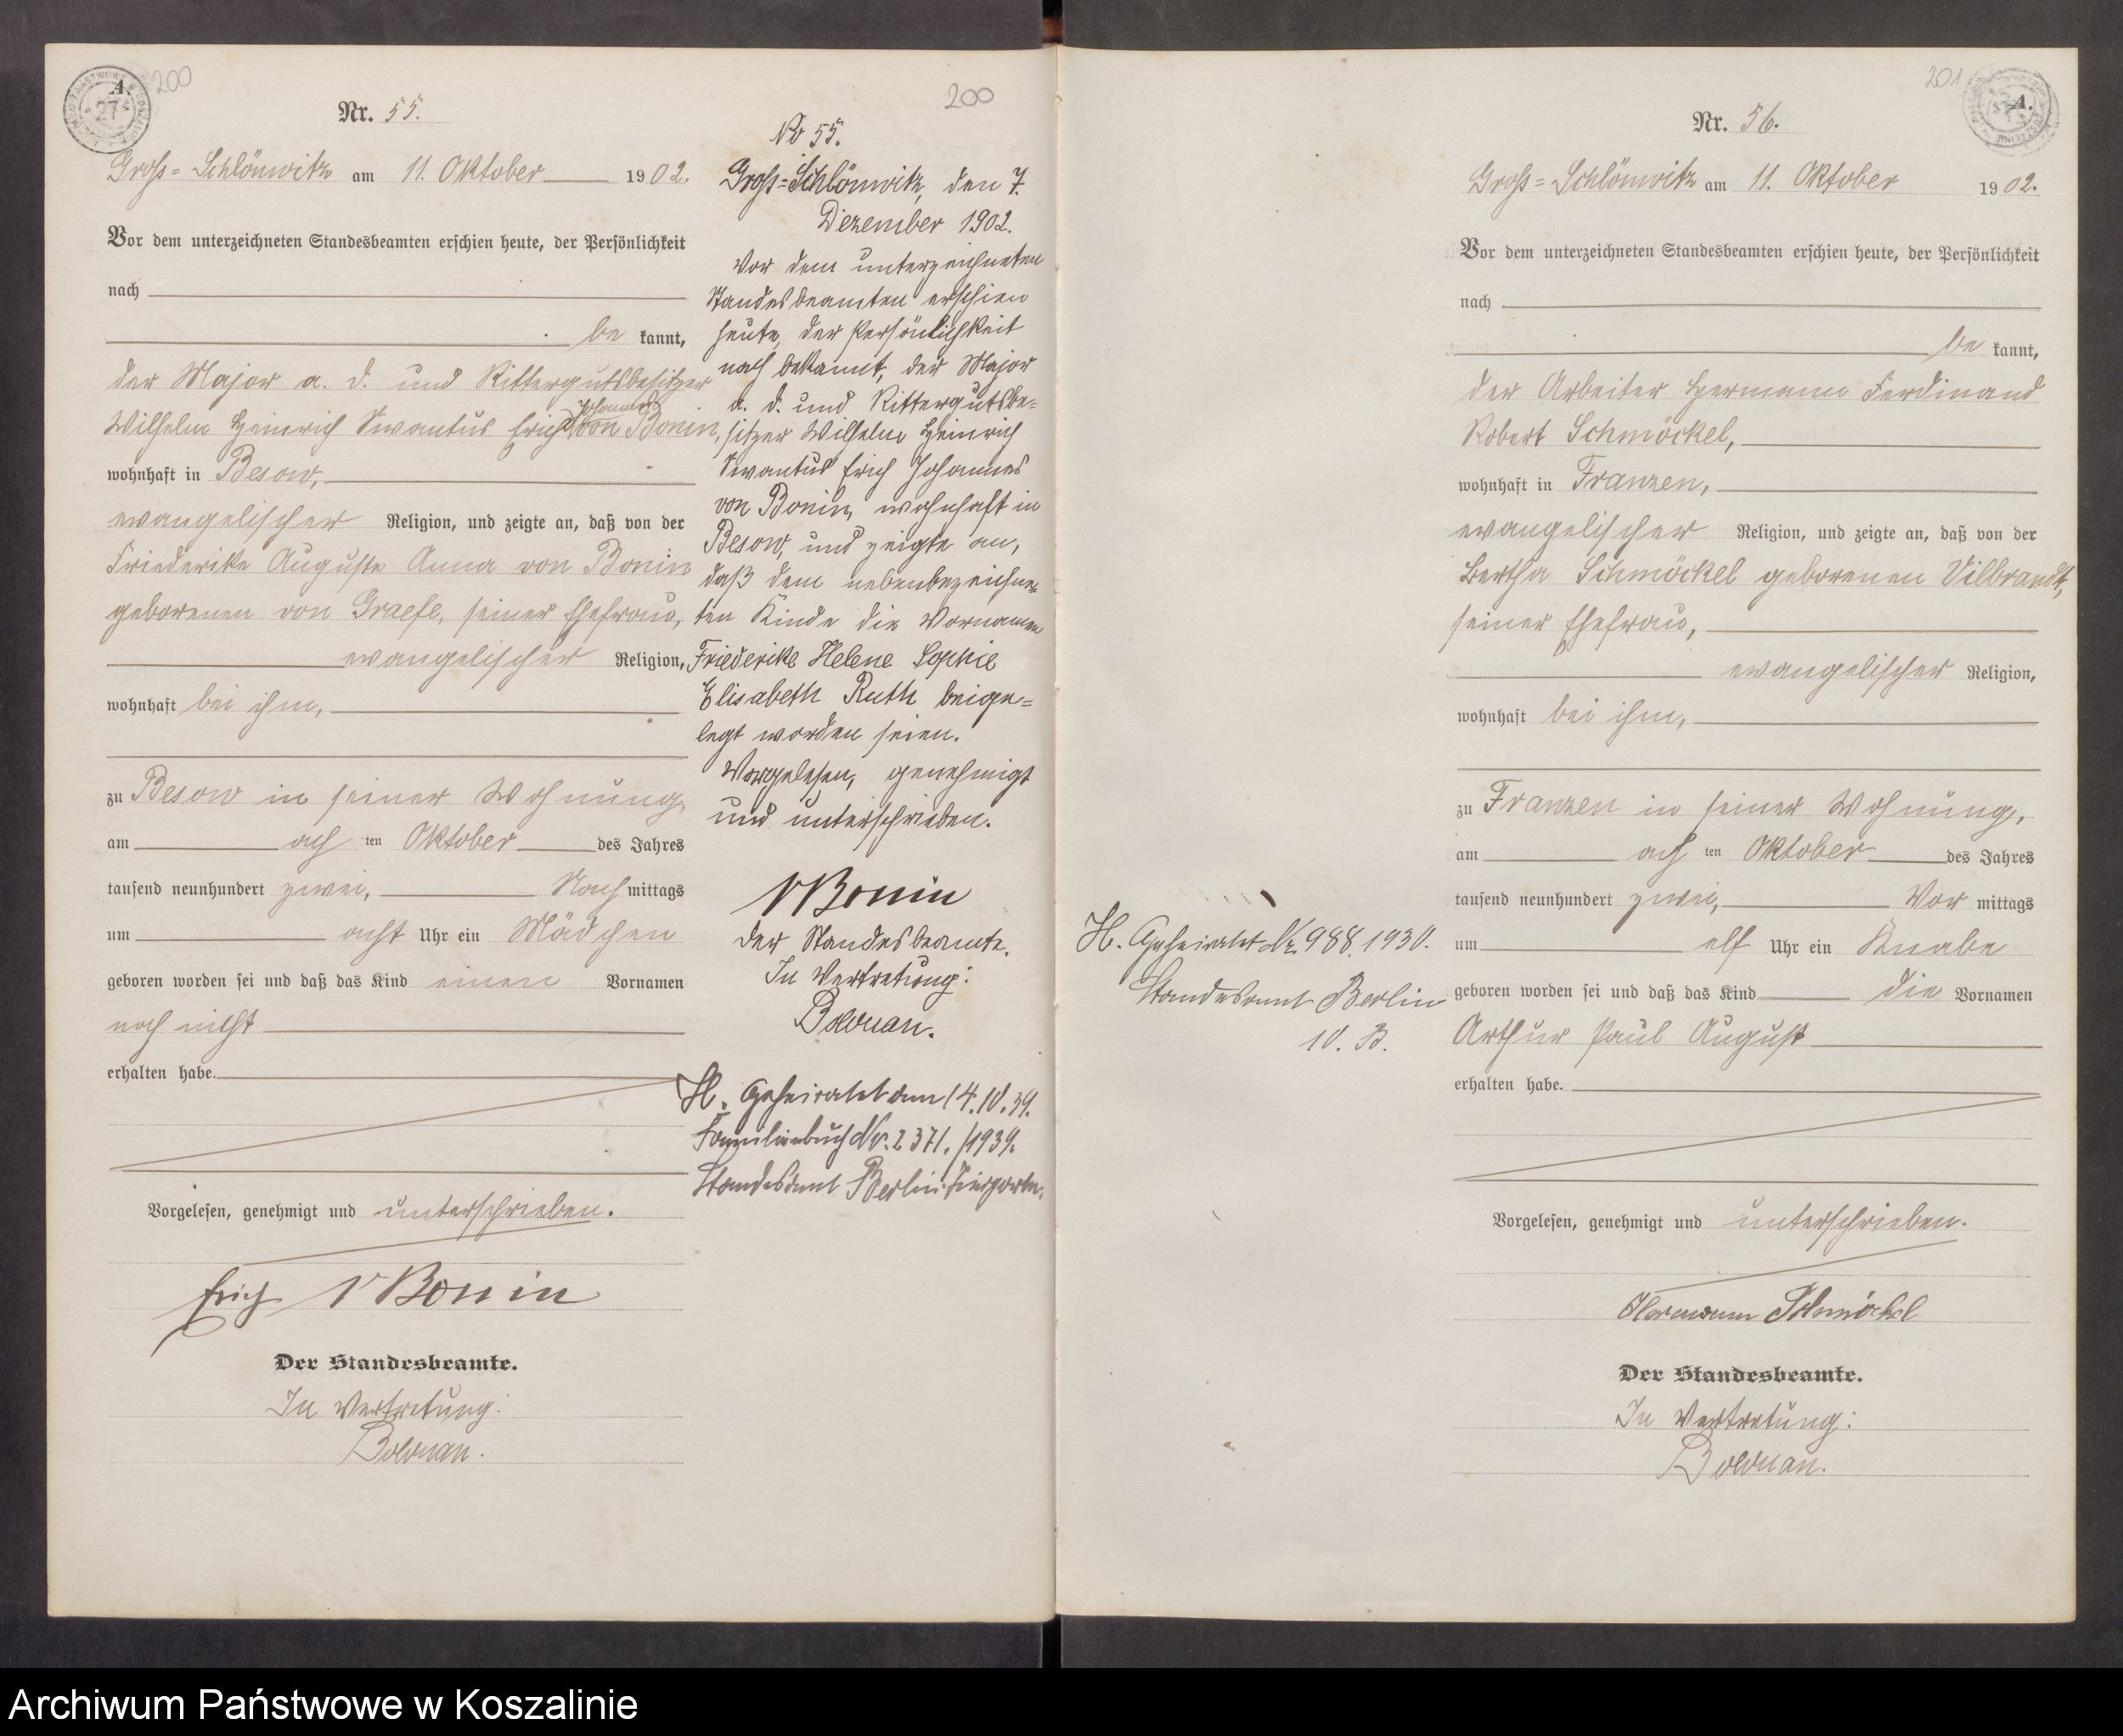 A.
200
Nr. 55.
Groß=Schlönwitz am 11. Oktober 1902.
Vor dem unterzeichneten Standesbeamten erschien heute, der Persönlichkeit
nach
be kannt,
der Major a. D. und Rittergutsbesitzer
Johannes
Wilhelm Heinrich Swantus Erich von Bonin,
wohnhaft in Besow,
evangelischer Religion, und zeigte an, daß von der
Friederike Auguste Anna von Bonin
geborenen von Graefe, seiner Ehefrau,
evangelischer Religion,
wohnhaft bei ihm,
zu Besow in seiner Wohnung,
am ach ten Oktober des Jahres
tausend neunhundert zwei, Nach mittags
um acht Uhr ein Mädchen
geboren worden sei und daß das Kind einen Vornamen
noch nicht
erhalten habe.
Vorgelesen, genehmigt und unterschrieben.
Erich v Bonin
Der Standesbeamte.
In Vertretung:
200
No 55.
Groß=Schlönwitz, den 7.
Dezember 1902.
Vor dem unterzeichneten
Standesbeamten erschien
heute, der Persönlichkeit
nach bekannt, der Major
a. D. und Rittergutsbe=
sitzer Wilhelm Heinrich
Swantus Erich Johannes
von Bonin, wohnhaft in
Besow, und zeigte an,
daß dem nebenbezeichne=
ten Kinde die Vornamen
Friederike Helene Sophie
Elisabeth Ruth beige=
legt worden seien.
Vorgelesen, genehmigt
und unterschrieben.
v Bonin
Der Standesbeamte.
In Vertretung:
H. Geheiratet am 14.10.39.
Familienbuch Nr. 2371./1939.
Standesamt Berlin-Tiergarten.
201
A.
Nr. 56.
Groß=Schlönwitz am 11. Oktober 1902.
Vor dem unterzeichneten Standesbeamten erschien heute, der Persönlichkeit
nach
be kannt,
der Arbeiter Hermann Ferdinand
Robert Schmöckel,
wohnhaft in Franzen,
evangelischer Religion, und zeigte an, daß von der
Bertha Schmöckel geborenen Vilbrandt,
seiner Ehefrau,
evangelischer Religion,
wohnhaft bei ihm,
zu Franzen in seiner Wohnung,
am ach ten Oktober des Jahres
tausend neunhundert zwei, Vor mittags
um elf Uhr ein Knabe
geboren worden sei und daß das Kind die Vornamen
Arthur Paul August
erhalten habe.
Vorgelesen, genehmigt und unterschrieben.
Hermann Schmöckel
Der Standesbeamte.
In Vertretung:
H. Geheiratet Nr. 988.1930.
Standesamt Berlin
10. B.
Archiwum Państwowe w Koszalinie